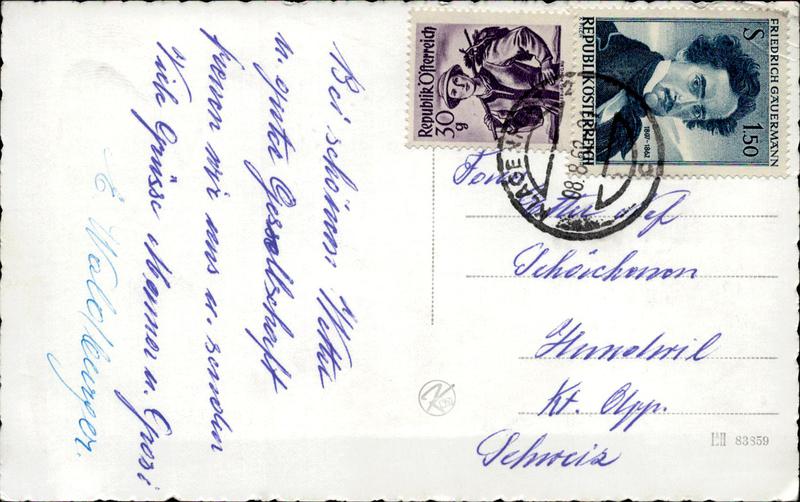 Bei schönem Wetter
u. guter Gesellschaft
freuen wir uns u. senden
Viele Grüsse Mamma u. Grosi
E. Waldburger.
Republik Österreich
30 g
REPUBLIK ÖSTERREICH
FRIEDRICH GAUERMANN
S 1.50
1807-1862
KLAGENFURT
08.8.62
Schöchenen
Hundwil
Kt. App.
Schweiz
83859